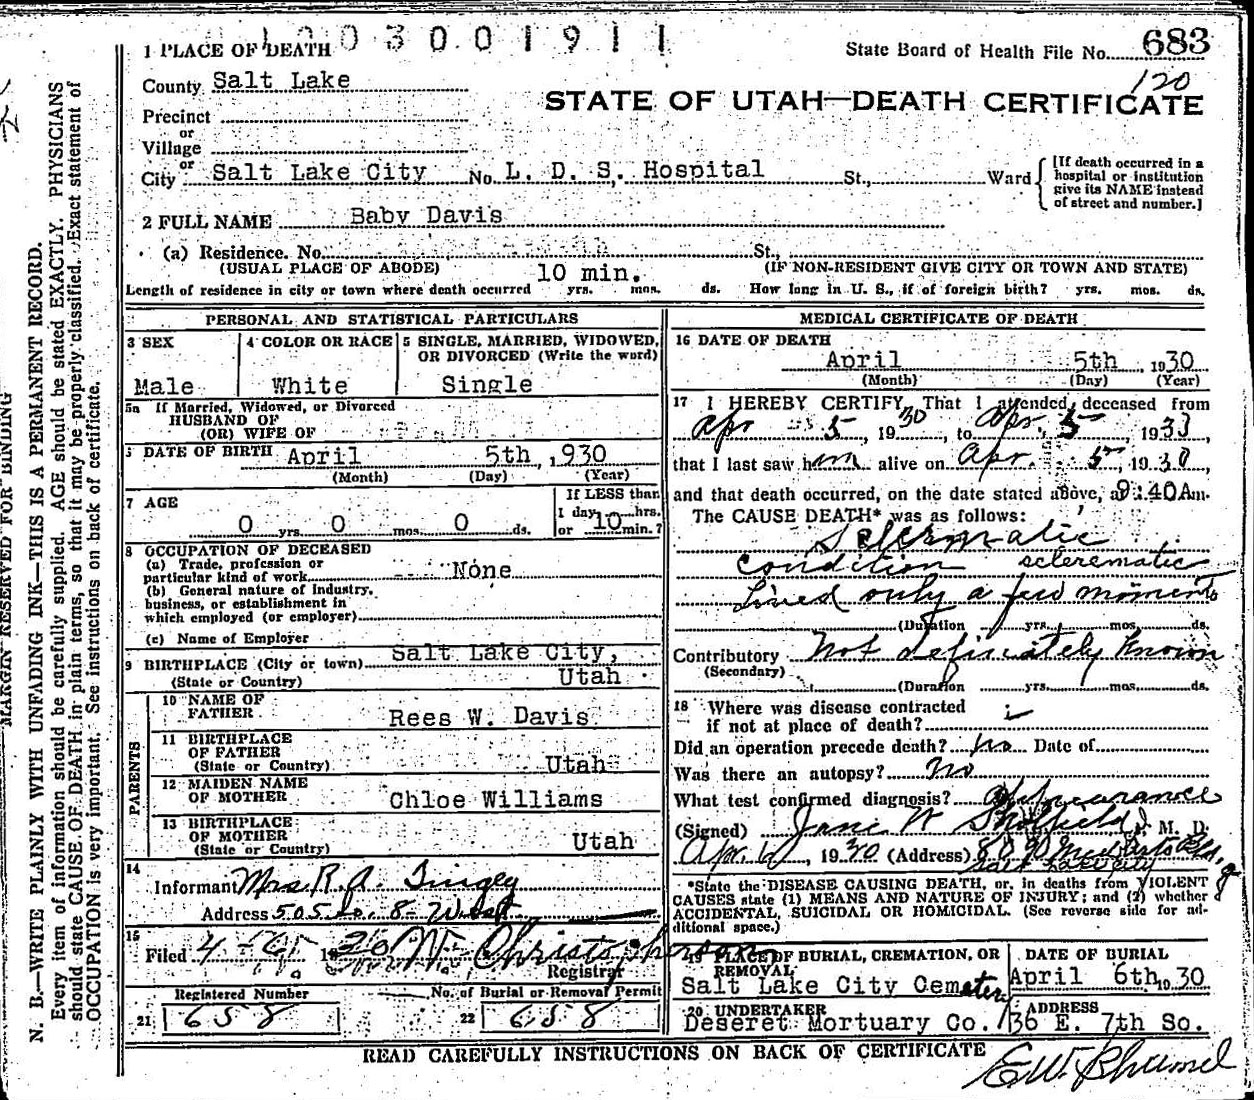 1003001911
1 PLACE OF DEATH
State Board of Health File No. 683
120
County Salt Lake
STATE OF UTAH—DEATH CERTIFICATE
Precinct
or
Village
or
City Salt Lake City No. L. D. S. Hospital St., Ward
[If death occurred in a hospital or institution give its NAME instead of street and number.]
2 FULL NAME Baby Davis
(a) Residence. No. St.,
(USUAL PLACE OF ABODE) (IF NON-RESIDENT GIVE CITY OR TOWN AND STATE)
10 min.
Length of residence in city or town where death occurred yrs. mos. ds. How long in U. S., if of foreign birth? yrs. mos. ds.
PERSONAL AND STATISTICAL PARTICULARS
3 SEX 4 COLOR OR RACE 5 SINGLE, MARRIED, WIDOWED, OR DIVORCED (Write the word)
Male White Single
5a If Married, Widowed, or Divorced
HUSBAND OF
(OR) WIFE OF
DATE OF BIRTH April 5th, 1930
(Month) (Day) (Year)
7 AGE
If LESS than
1 day hrs.
0 yrs. 0 mos. 0 ds. or 10 min.?
8 OCCUPATION OF DECEASED
(a) Trade, profession or
particular kind of work None
(b) General nature of industry,
business, or establishment in
which employed (or employer)
(c) Name of Employer
9 BIRTHPLACE (City or town) Salt Lake City,
(State or Country) Utah
PARENTS
10 NAME OF
FATHER Rees W. Davis
11 BIRTHPLACE
OF FATHER
(State or Country) Utah
12 MAIDEN NAME
OF MOTHER Chloe Williams
13 BIRTHPLACE
OF MOTHER
(State or Country) Utah
14
Informant Mrs. R. A. Tingey
Address 505 So. 8 West
15
Filed 4 30 W Christopherson
Registrar
Registered Number No. of Burial or Removal Permit
21 658 22 658
MEDICAL CERTIFICATE OF DEATH
16 DATE OF DEATH
April 5th, 1930
(Month) (Day) (Year)
17 I HEREBY CERTIFY, That I attended deceased from
Apr 5, 1930, to Apr. 5, 1933,
that I last saw him alive on Apr. 5, 1930,
and that death occurred, on the date stated above, at 9:40 A m.
The CAUSE DEATH* was as follows:
Sclermatic
condition sclerematic
Lived only a few moments
(Duration yrs. mos. ds.
Contributory Not definitely known
(Secondary)
(Duration yrs. mos. ds.
18 Where was disease contracted
if not at place of death?
Did an operation precede death? no Date of
Was there an autopsy? no
What test confirmed diagnosis? Appearance
(Signed) Jane W Sheffield, M. D.
Apr. 6, 1930 (Address) Medical Arts Bldg
Salt Lake City
*State the DISEASE CAUSING DEATH, or, in deaths from VIOLENT
CAUSES state (1) MEANS AND NATURE OF INJURY; and (2) whether
ACCIDENTAL, SUICIDAL OR HOMICIDAL. (See reverse side for additional space.)
19 PLACE OF BURIAL, CREMATION, OR REMOVAL DATE OF BURIAL
Salt Lake City Cemetery April 6th 1930
20 UNDERTAKER ADDRESS
Deseret Mortuary Co. 36 E. 7th So.
READ CAREFULLY INSTRUCTIONS ON BACK OF CERTIFICATE
MARGIN RESERVED FOR BINDING
N. B.—WRITE PLAINLY WITH UNFADING INK—THIS IS A PERMANENT RECORD.
Every item of information should be carefully supplied. AGE should be stated EXACTLY. PHYSICIANS
should state CAUSE OF DEATH in plain terms, so that it may be properly classified. Exact statement of
OCCUPATION is very important. See instructions on back of certificate.